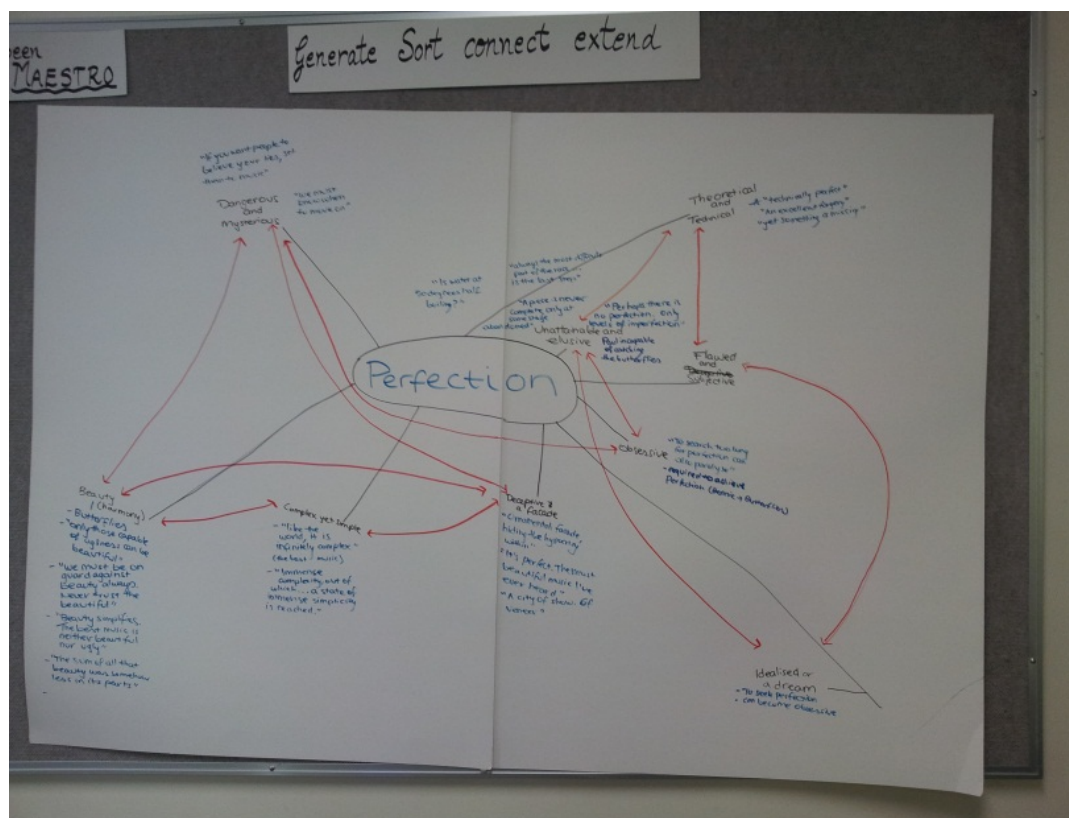 een
MAESTRO
Generate Sort connect extend
"If you want people to
believe your lies,
Dangerous
and
mysterious
"we must
to move on"
Theoretical
and
Technical
"technically perfect"
"An excellent forgery"
"yet something is missing"
"always the most difficult
part of the
is the last
"Is water at
boiling?"
complete only at
some stage
abandoned"
"Perhaps there is
no perfection. only
levels of imperfection"
Unattainable and
elusive
Paul incapable
of catching
the butterflies
Perfection
Flawed
and
Subjective
Obsessive
"To search too long
for perfection can
also paralyse"
- required to achieve
Perfection
Beauty
/ (harmony)
- Butterflies
- "only those capable
of ugliness can be
beautiful"
- "we must be on
guard against
beauty always.
Never trust the
beautiful"
- "Beauty simplifies.
The best music is
neither beautiful
nor ugly"
- "The sum of all that
beauty was somehow
less in its parts"
Complex yet simple
- "like the
world, it is
infinitely complex"
(the best music)
- "Immense
complexity out of
which... a state of
immense simplicity
is reached."
Deceptive &
a facade
facade
hiding the hypocrisy
within"
"It's perfect. The most
beautiful music I've
ever heard"
"A city of show. Of
veneers"
Idealised or
a dream
- To seek perfection
- can become obsessive